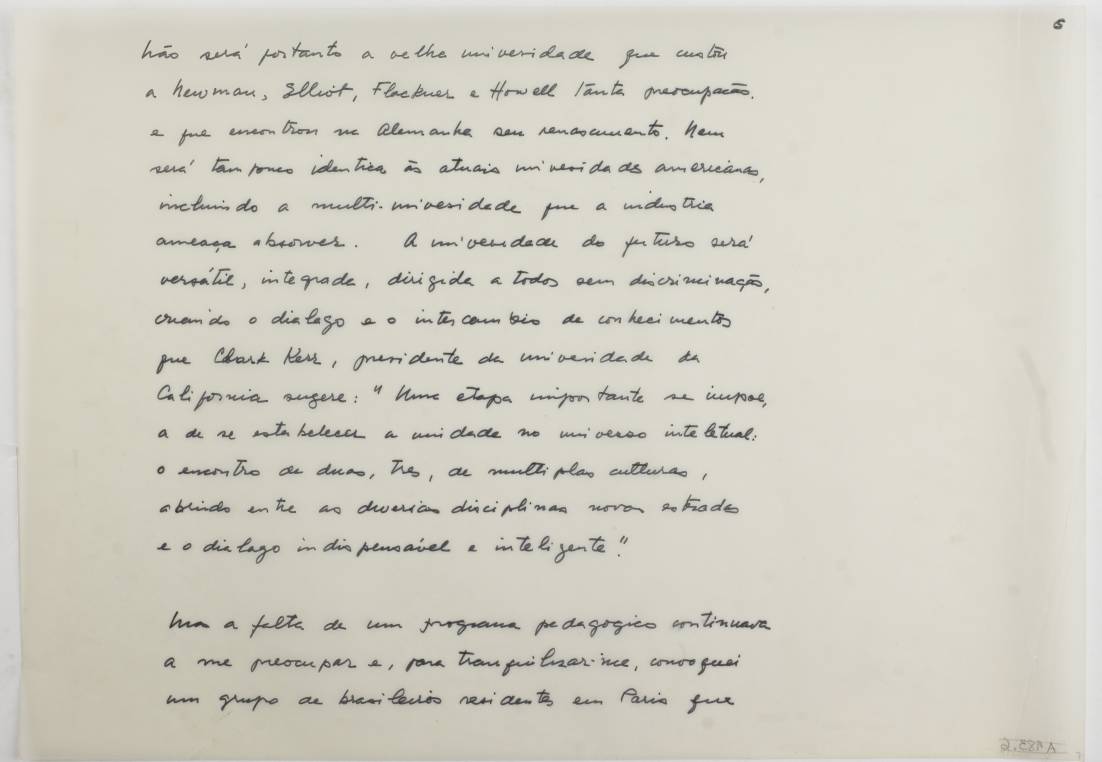 5
Não será portanto a velha universidade que custou
a Newman, Elliot, Flackner e Howell tanta preocupação.
e que encontrou na Alemanha seu renascimento. Nem
será tampouco identica às atuais universidades americanas,
incluindo a multi-universidade que a industria
ameaça absorver. A universidade do futuro será
versátil, integrada, dirigida a todos sem discriminação,
criando o dialogo e o intercambio de conhecimentos
que Chark Kerr, presidente da universidade da
California sugere: "Uma etapa importante se impoe,
a de se estabelecer a unidade no universo inteletual:
o encontro de duas, tres, de multiplas culturas,
abrindo entre as diversas disciplinas novas estradas
e o dialogo indispensável e inteligente".
Mas a falta de um programa pedagogico continuava
a me preocupar e, para tranquilizar-me, convoquei
um grupo de brasileiros residentes em Paris que